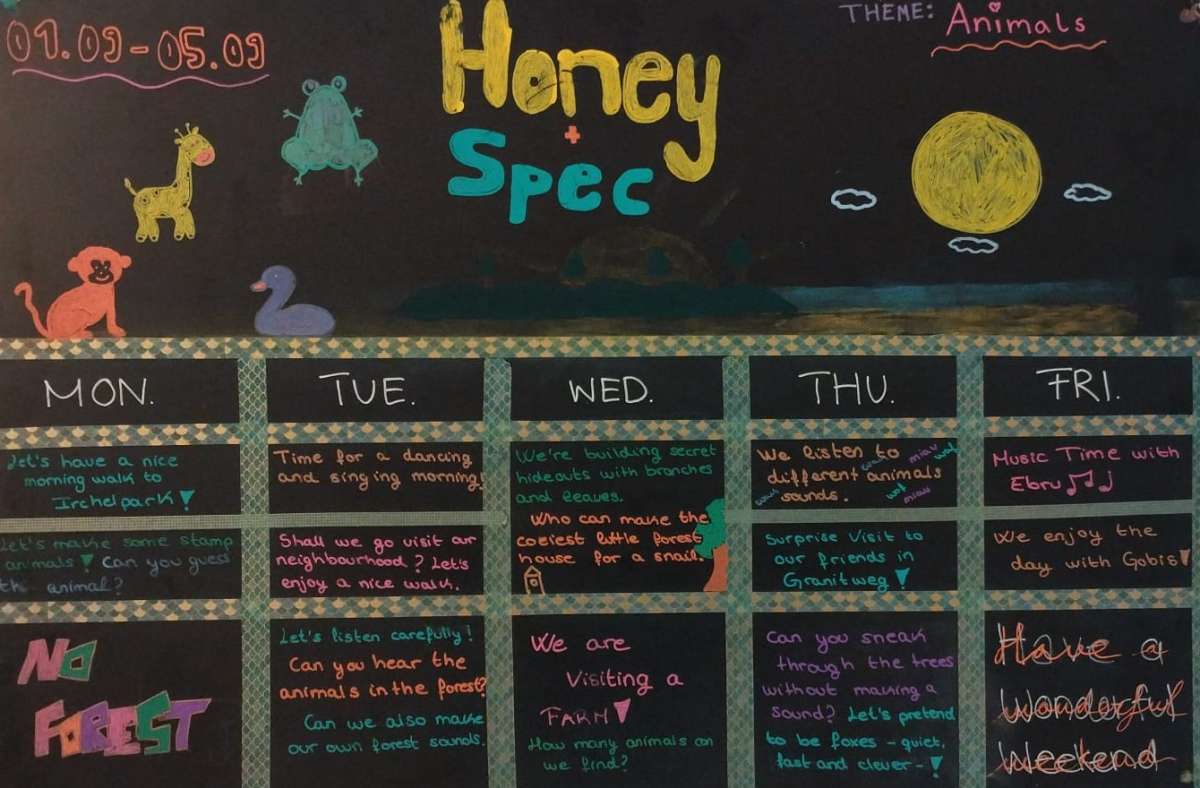 01.09-05.09
Honey
+
Spec
THEME: Animals
MON.
TUE.
WED.
THU.
FRI.
Let's have a nice
morning walk to
Irchelpark!
Time for a dancing
and singing morning!
We're building secret
hideouts with branches
and leaves.
Who can make the
coziest little forest
house for a snail.
We listen to miau wof
different animals
wauu sounds. wof miau
Music Time with
Ebru
Let's make some stamp
animals! Can you guess
the animal?
Shall we go visit our
neighbourhood? Let's
enjoy a nice walk.
Surprise Visit to
our friends in
Granitweg!
We enjoy the
day with Gobis!
No
FOREST
Let's listen carefully!
Can you hear the
animals in the forest?
Can we also make
our own forest sounds.
We are
Visiting a
FARM!
How many animals can
we find?
Can you sneak
through the trees
without making a
sound? Let's pretend
to be foxes - quiet,
fast and clever-!
Have a
Wonderful
Weekend